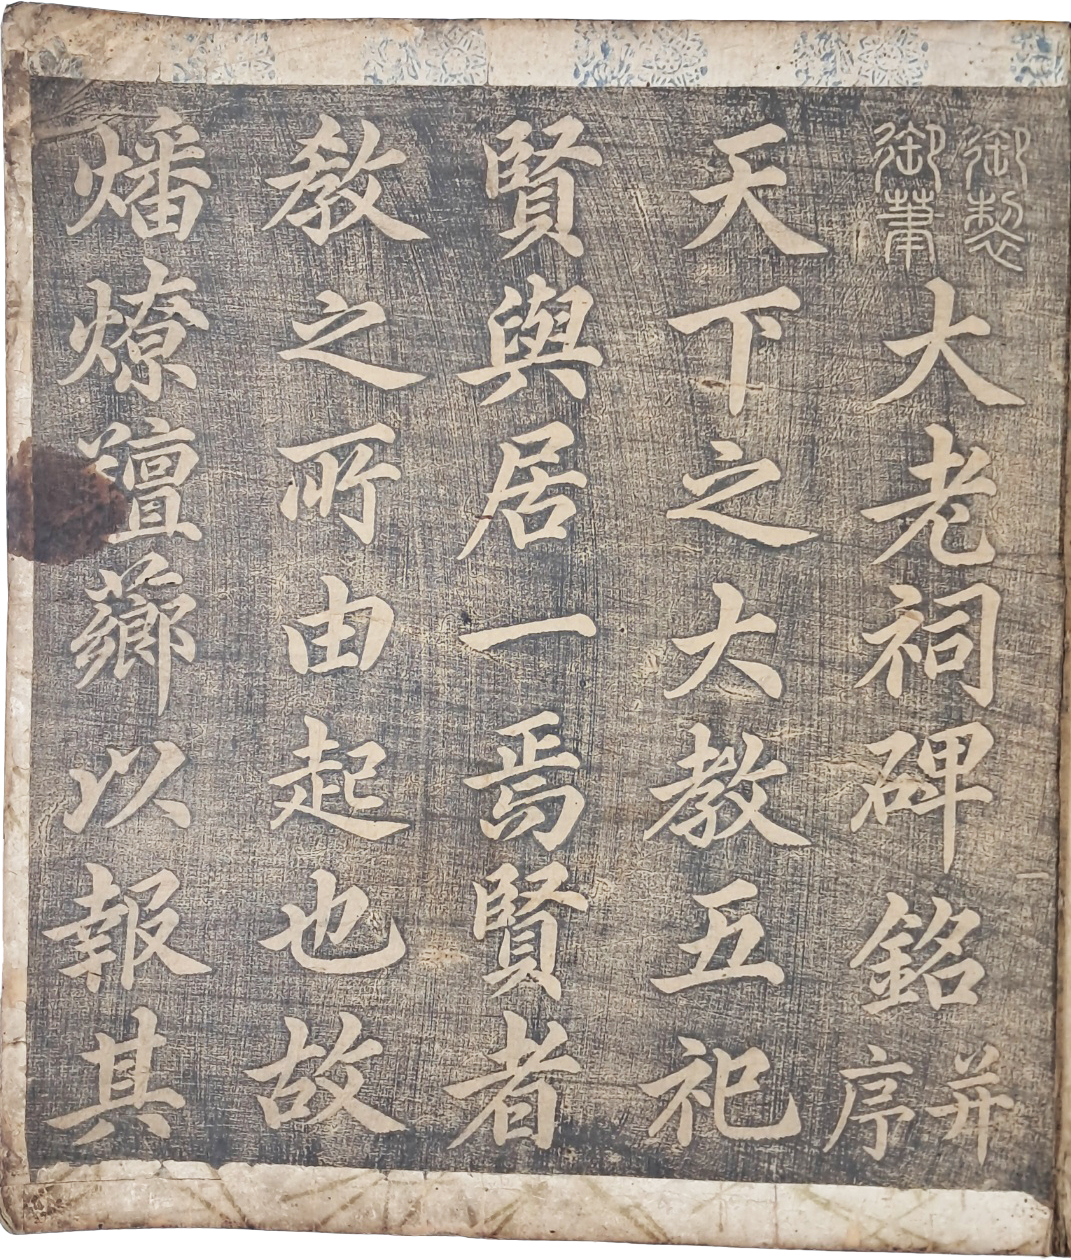 御製御筆大老祠碑銘并序
天下之大教五祀
賢與居一焉賢者
敎之所由起也故
燔燎羶薌以報其